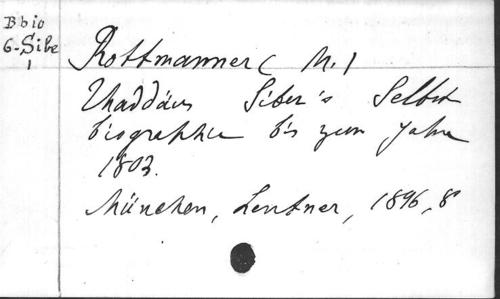 Bbio
6-Sibe
1
Rottmanner ( M. )
Thaddäus Siber's Selbst
biographie bis zum Jahre
1803.
München, Lentner, 1896, 8°